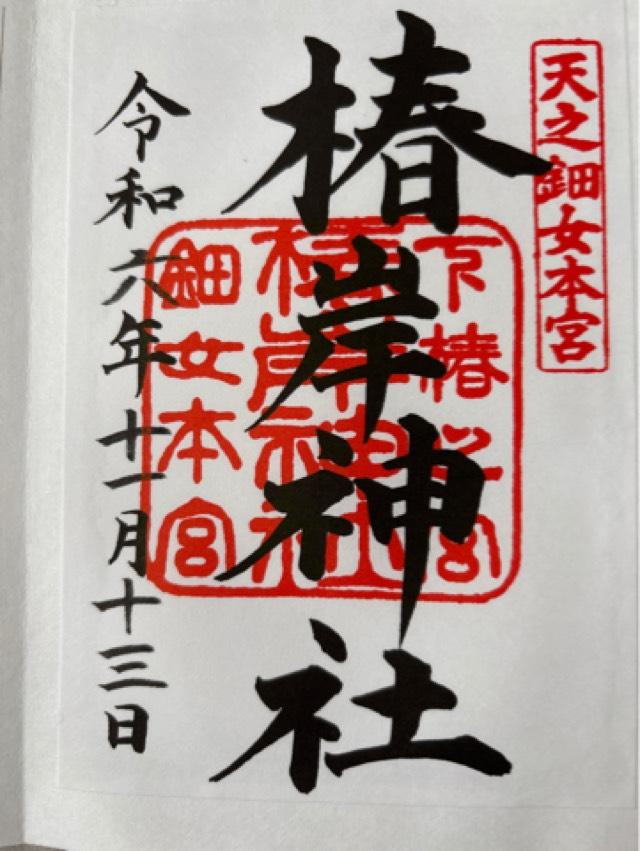 天之鈿女本宮
椿岸神社
下椿之宮
椿岸神社
鈿女本宮
令和六年十一月十三日